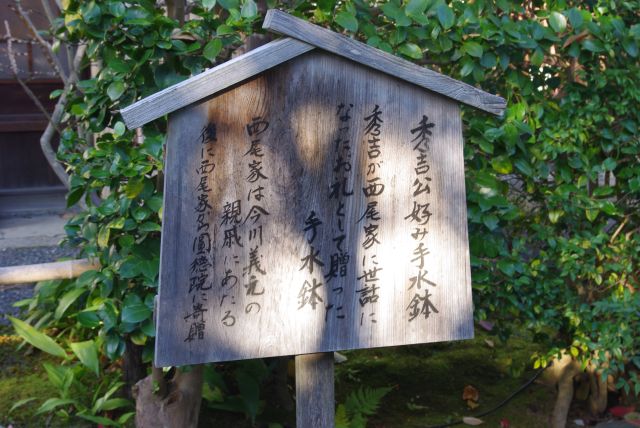 秀吉公好み手水鉢
秀吉が西尾家に世話に
なったお礼として贈った
手水鉢
西尾家は今川義元の
親戚にあたる
後に西尾家名園徳院に寄贈